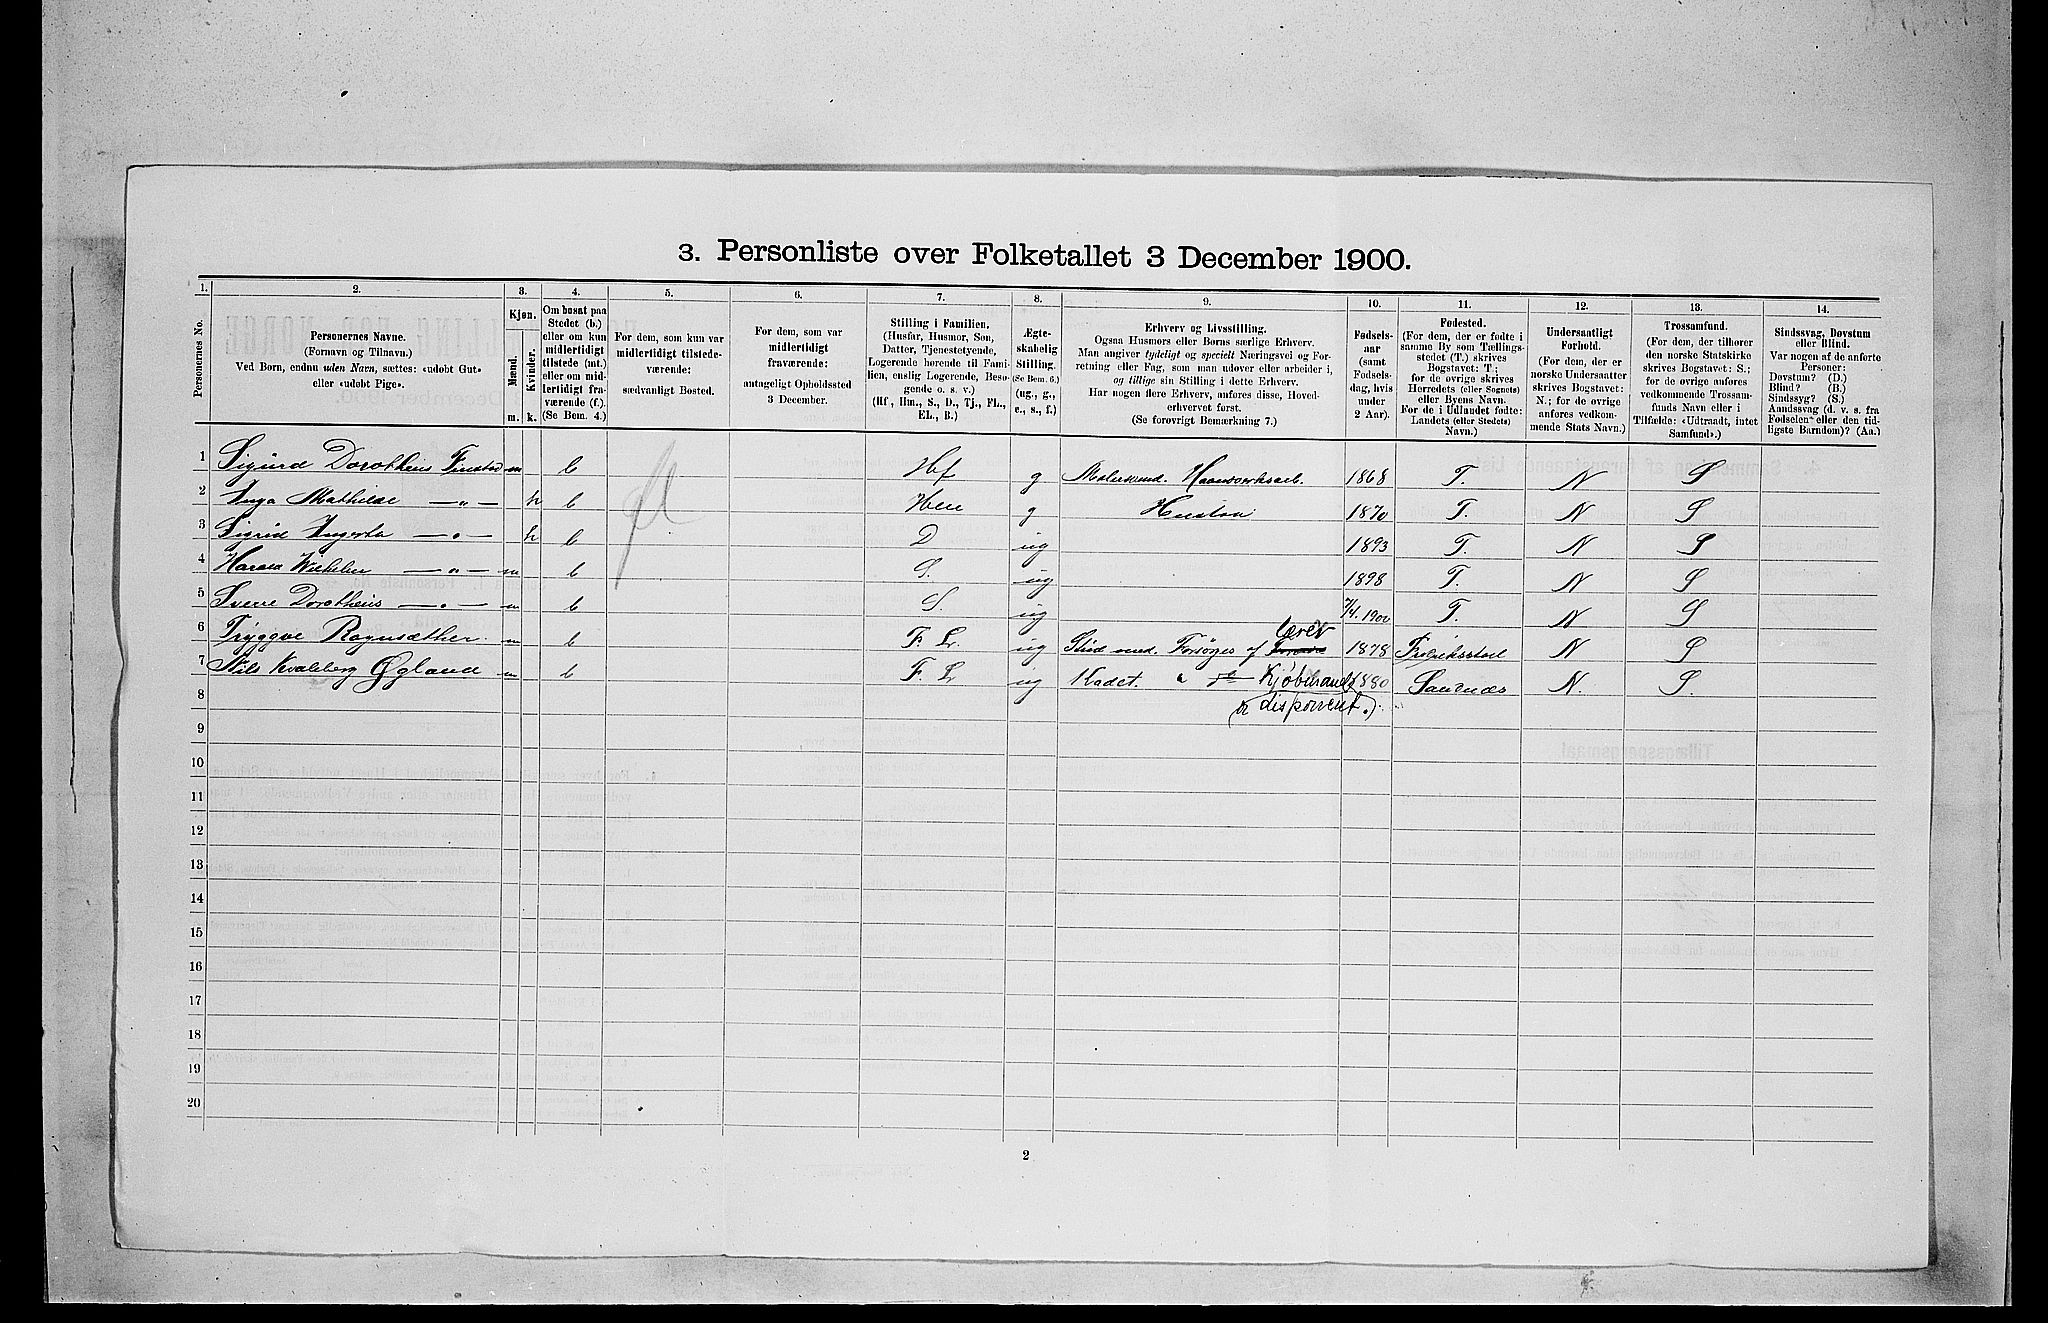 3. Personliste over Folketallet 3 December 1900.
1. 2. 3. 4. 5. 6. 7. 8. 9. 10. 11. 12. 13. 14.
Personernes No.
Personernes Navne.
(Fornavn og Tilnavn.)
Ved Børn, endnu uden Navn, sættes: «udøbt Gut»
eller «udøbt Pige».
Kjøn.
Mænd. Kvinder.
m. k.
Om bosat paa
Stedet (b.)
eller om kun
midlertidigt
tilstede (mt.)
eller om mid-
lertidigt fra-
værende (f.).
(Se Bem. 4.)
For dem, som kun var
midlertidigt tilstede-
værende:
sædvanligt Bosted.
For dem, som var
midlertidigt
fraværende:
antageligt Opholdssted
3 December.
Stilling i Familien.
(Husfar, Husmor, Søn,
Datter, Tjenestetyende,
Logerende hørende til Fami-
lien, enslig Logerende, Besø-
gende o. s. v.)
(Hf., Hm., S., D., Tj., FL.,
EL., B.)
Ægte-
skabelig
Stilling.
(Se Bem. 6.)
(ug., g.,
e., s., f.)
Erhverv og Livsstilling.
Ogsaa Husmors eller Børns særlige Erhverv.
Man angiver tydeligt og specielt Næringsvei og For-
retning eller Fag, som man udøver eller arbeider i,
og tillige sin Stilling i dette Erhverv.
Har nogen flere Erhverv, anføres disse, Hoved-
erhvervet først.
(Se forøvrigt Bemærkning 7.)
Fødsels-
aar
(samt
Fødsels-
dag, hvis
under
2 Aar).
Fødested.
(For dem, der er fødte i
samme By som Tællings-
stedet (T.) skrives
Bogstavet: T;
for de øvrige skrives
Herredets (eller Sognets)
eller Byens Navn.
For de i Udlandet fødte:
Landets (eller Stedets)
Navn.)
Undersaatligt
Forhold.
(For dem, der er
norske Undersaatter
skrives Bogstavet:
N.; for de øvrige
anføres vedkom-
mende Stats Navn.)
Trossamfund.
(For dem, der tilhører
den norske Statskirke
skrives Bogstavet: S.;
for de øvrige anføres
vedkommende Trossam-
funds Navn eller i
Tilfælde: «Udtraadt, intet
Samfund».)
Sindssvag, Døvstum
eller Blind.
Var nogen af de anførte
Personer:
Døvstum? (D.)
Blind? (B.)
Sindssyg? (S.)
Aandssvag (d. v. s. fra
Fødselen eller den tid-
ligste Barndom)? (Aa.)
1 Sigurd Dorotheus Finstad m b Hf g Malersvend. Haandverksarb. 1868 T. N S
2 Inga Mathilde — „ — k b Hm g Hustru 1870 T. N S
3 Sigrid Ingerta — „ — k b D ug 1893 T. N S
4 Harald Wilhelm — „ — m b S. ug 1898 T. N S
5 Sverre Dorotheus — „ — m b S. ug 7/4 1900 T. N S
6 Tryggve Rognsæther. m b F. L. ug Stud. med. Forsørges af lærer 1878 Fredriksstad N S
7 Nils Kvalberg Øgland m b F. L. ug Kadet. „ do Kjøbmand 1880 Sandnæs N. S.
8 (& disponent.)
9
10
11
12
13
14
15
16
17
18
19
20
2